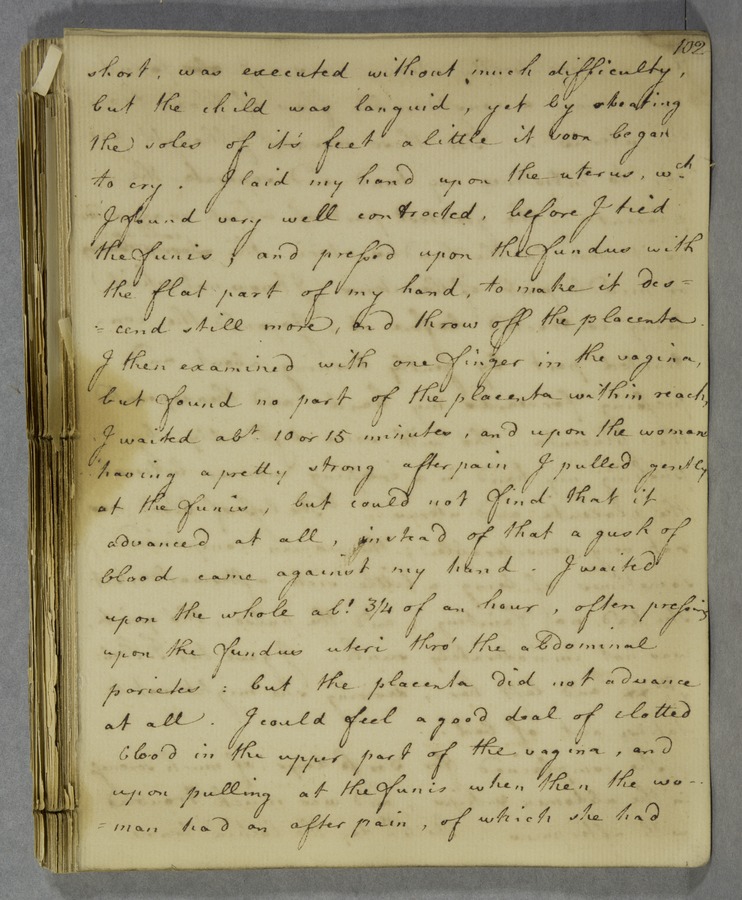 102
short, was executed without much difficulty,
but the child was languid, yet by beating
the soles of it's feet a little it soon began
to cry. I laid my hand upon the uterus, wch
I found very well contracted, before I tied
the funis; and pressed upon the fundus with
the flat part of my hand, to make it des=
=cend still more, and throw off the placenta.
I then examined with one finger in the vagina,
but found no part of the placenta within reach,
I waited abt. 10 or 15 minutes, and upon the woman
having a pretty strong after pain I pulled gently
at the funis, but could not find that it
advanced at all, instead of that a gush of
blood came against my hand. I waited
upon the whole abt. 3/4 of an hour, often pressing
upon the fundus uteri thro' the abdominal
parietes: but the placenta did not advance
at all. I could feel a good deal of clotted
blood in the upper part of the vagina, and
upon pulling at the funis when then the wo-
=man had an after pain, of which she had